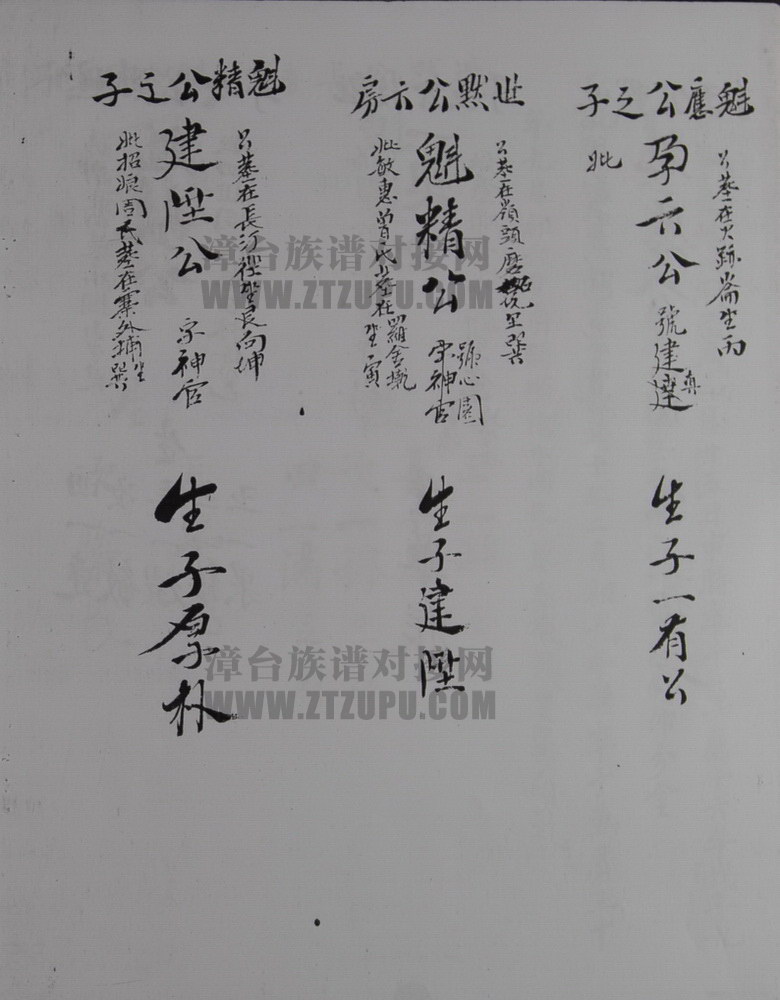 魁應公之子
公墓在大跡崙坐丙
孕六公 號建達
妣
生子一有公
世默公六房
公墓在嶺頭磨坐巽
魁精公 號心園 字神官
妣敏惠曾氏墓在羅金坐寅
生子建陞
魁精公之子
公墓在長汀徑坐艮向坤
建陞公 字神官
妣招娘周氏墓在寨外坐巽
生子原朴
漳台族谱对接网
WWW.ZTZUPU.COM
漳台族谱对接网
WWW.ZTZUPU.COM